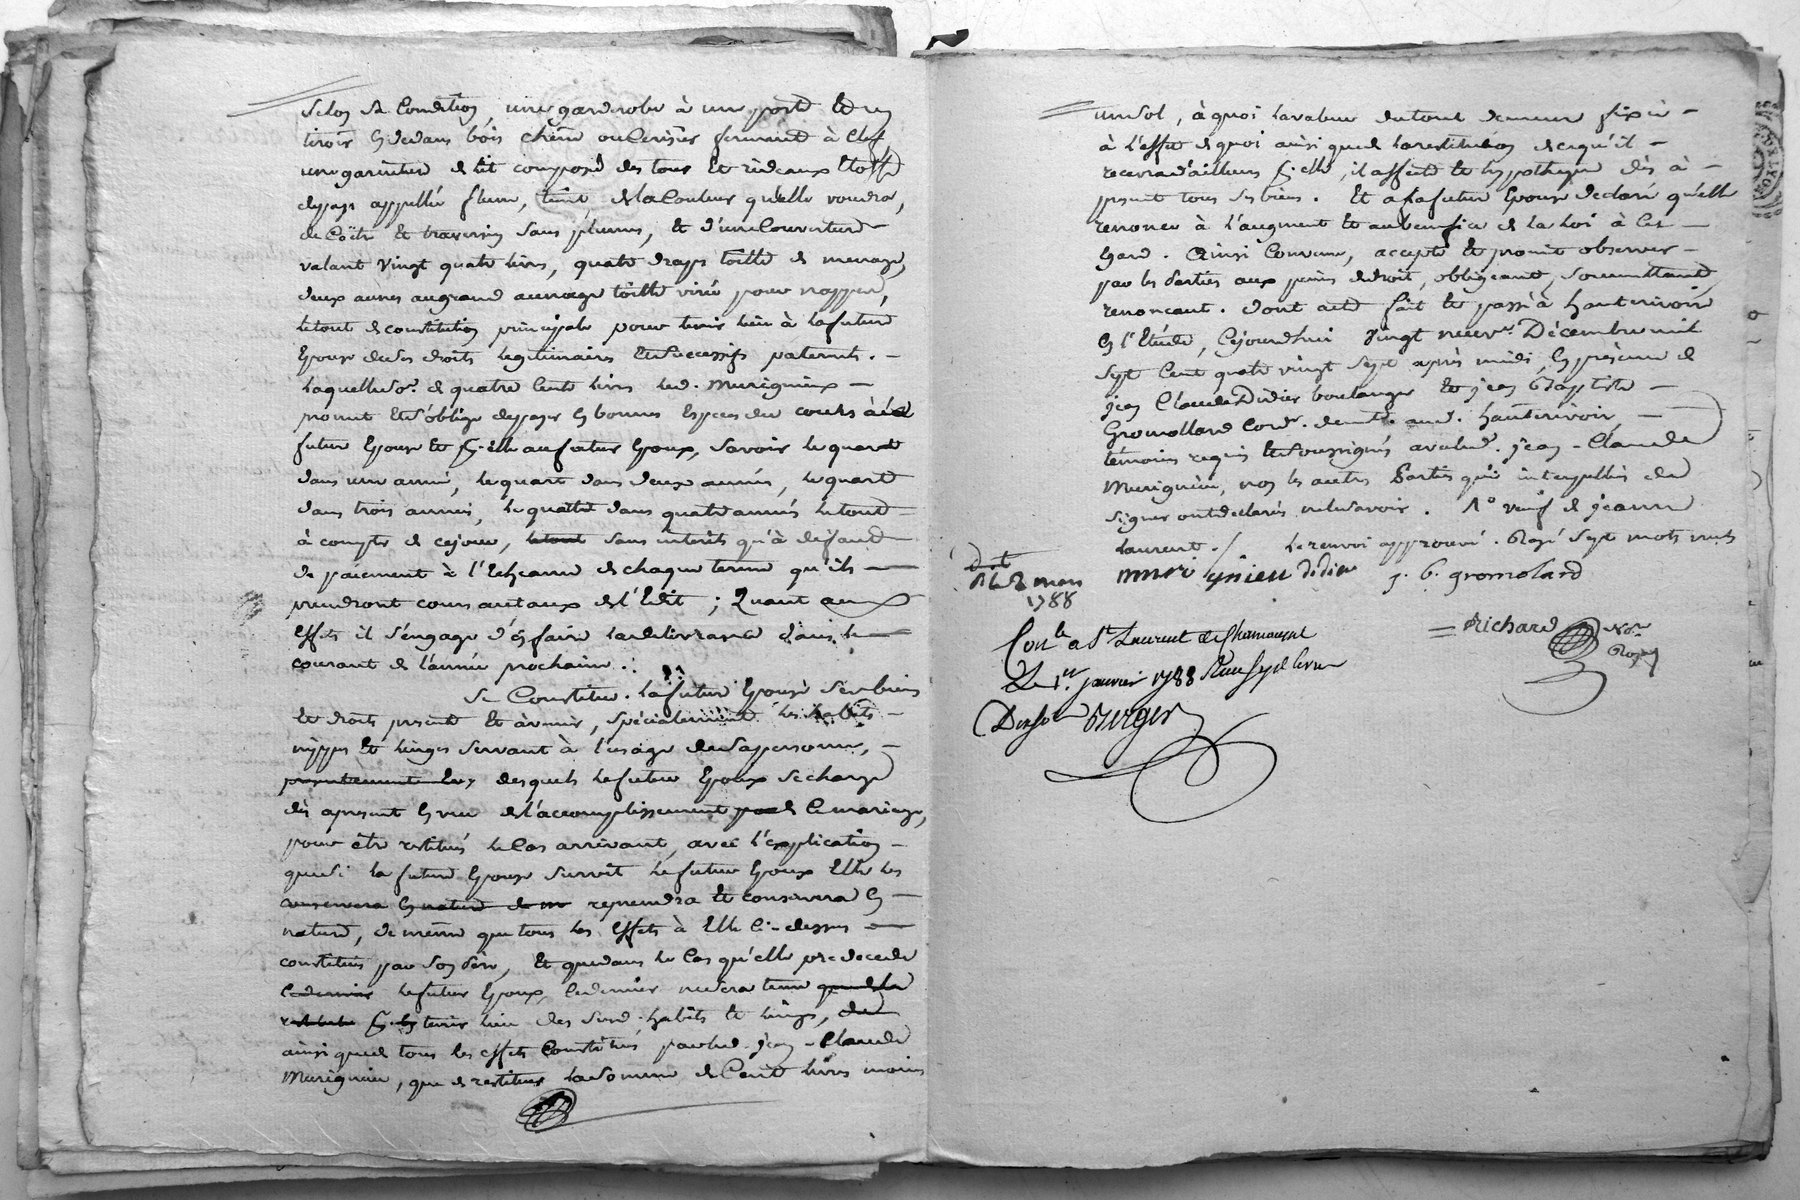 selon sa Condition, une garderobe à une porte et un
tiroir en dedans bois chêne ou Cerisier fermant à Clef
une garniture de lit composée des tour et rideaux étoffe
de pays appellée fleuret, teint de la Couleur qu'elle voudra,
de Coëtre et traversin sans plumes, et d'une Couverture
valant vingt quatre livres, quatre draps toille de menage,
deux aunes au grand aunage toille virée pour nappes,
le tout de constitution principale pour tenir lieu à la future
Epouse de ses droits legitimaires et successifs paternels. -
laquelle so.e de quatre Cent livres led. Murigneux -
promet et s'oblige de payer en bonnes Especes du cours à la
future Epouse et p.r elle au futur Epoux, savoir le quart
dans une année, le quart dans deux années, le quart
dans trois années, le quatre dans quatre années le tout
à compter de ce jour, le tout sans interêts qu'à défaut
de paiement à l'Echeance de chaque terme qu'ils
prendront cours au taux de l'Edit ; Quant aux
Effets il s'engage d'en faire la delivrance dans le
courant de l'année prochaine.
Se Constitue la future Epouse ses biens
et droits present et à venir, spécialement les habits -
nippes et linges servant à l'usage de sa personne, -
desquels le futur Epoux se charge
dès apresent en vue de l'accomplissement de Ce mariage,
pour être restitués le Cas arrivant, avec l'explication -
que si la future Epouse survit le futur Epoux Elle les
en nature de reprendra et conservera en -
nature, de meme que tous les Effets à Elle Ci-dessus
constitués par son Père, Et que dans le Cas qu'elle predecede
le futur Epoux, ce dernier ne sera tenu
tenir lieu des susd. habits et linges,
ainsi que de tous les effets Constitués par led. Jean-Claude
Murigneux, que de restituer la somme de Cent livres moins
un sol, à quoi la valeur du tout demeure fixée -
à l'effet de quoi ainsi que de la restitution de ce qu'il -
recevra d'ailleurs p.r elle, il affecte et hypotheque dès à -
present tous ses biens. Et a la future Epouse declaré qu'elle
renonce à l'augment et au benefice de la Loi à Cet
Egard. Ainsi Convenu, accepté et promit observer -
par les Parties aux peines de droit, obligeant, soumettant,
renoncant. dont acte fait et passé à hauterivoire
en l'Etude, Cejourdhui vingt neuv.e Décembre mil
sept Cent quatre vingt sept après midi, en présence de
jean Claude Didier boulanger et jean Baptiste -
Gromollard Cord.r demt. aud. hauterivoire, -
témoins requis et soussignés avec led. jean-Claude
Murigneux, non les autres Parties qui interpellés de
signer ont declarés ne le savoir. 1° veuf de jeanne
Laurent ./. le renvoi approuvé. Rayé sept mots nuls
murigneu didier j. b. gromolard
dt
le 2 mars
1788
Richard No.re
Royal
Con.lé a St. Laurent de Chamousset
Le 1.er janvier 1788
Berger